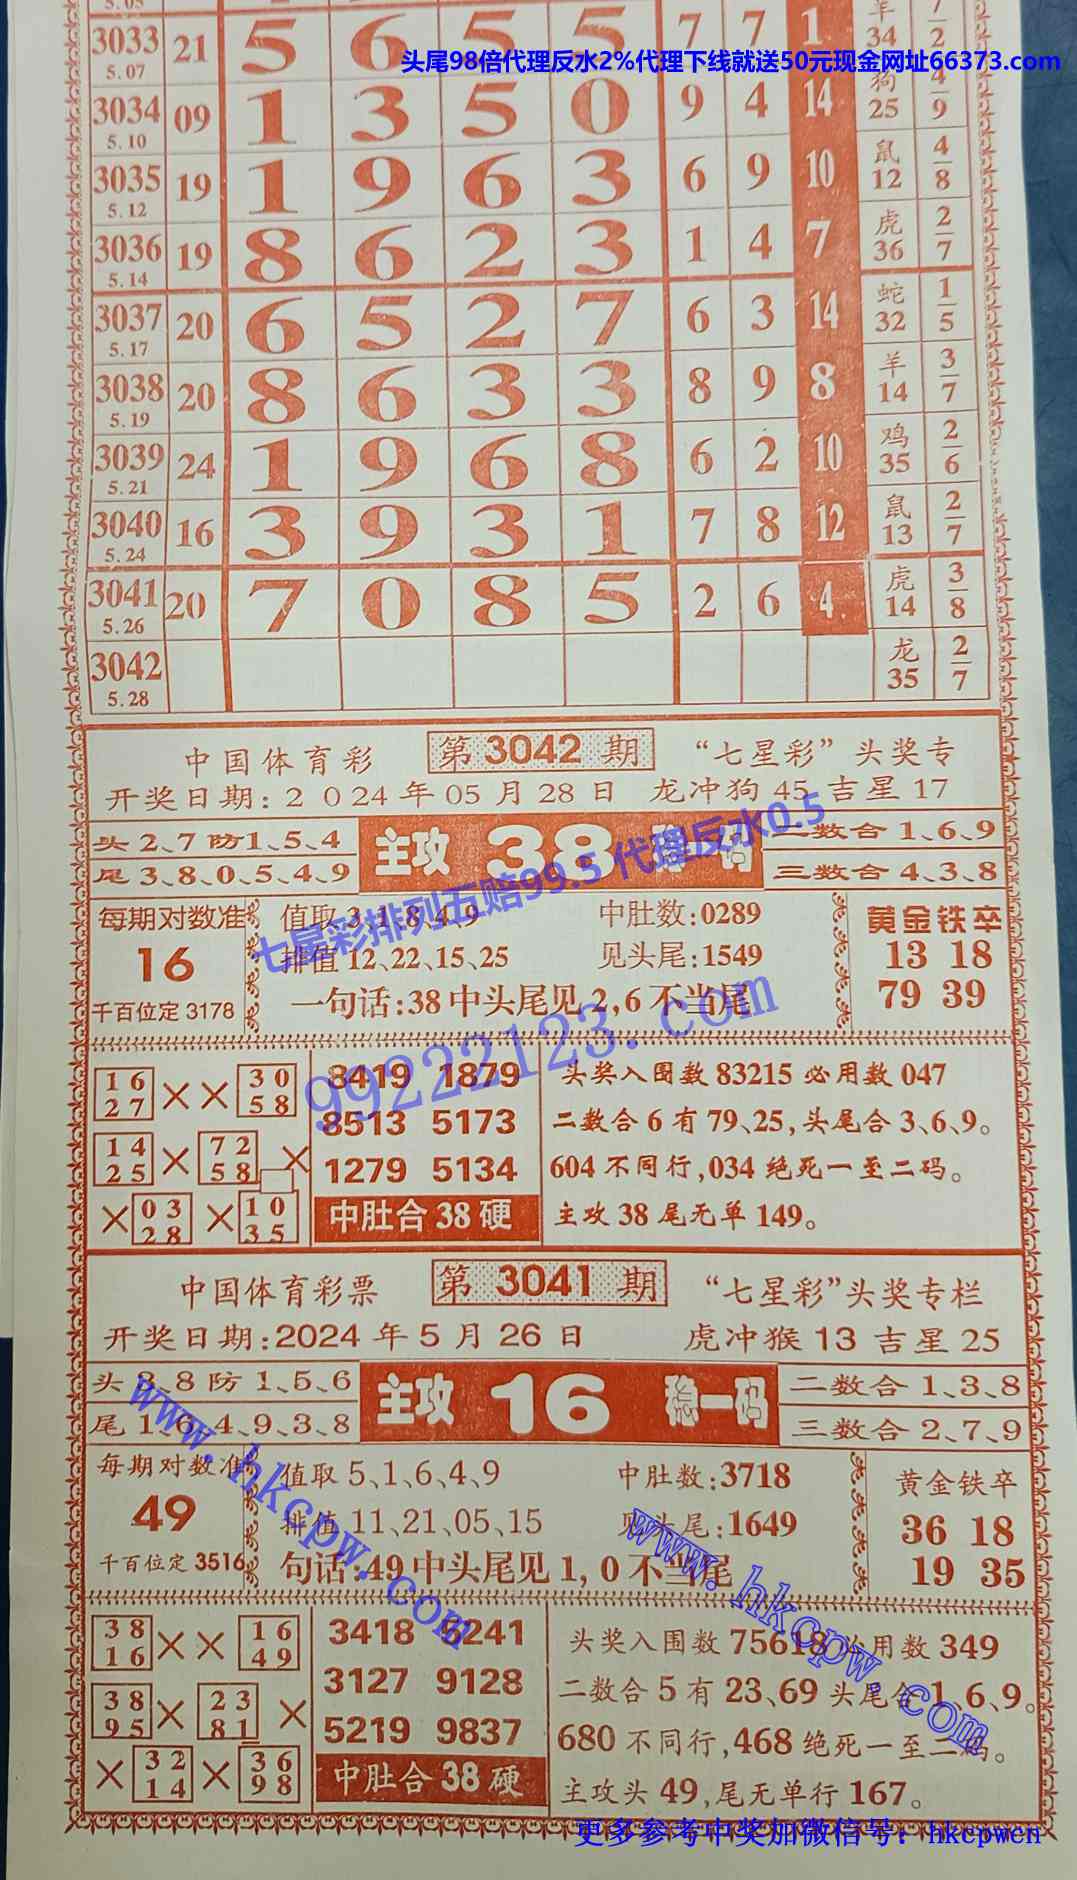 5.05
3033 21 5 6 5 5 7 7 1 羊 7
5.07 34 2
头尾98倍代理反水2%代理下线就送50元现金网址66373.com
3034 09 1 3 5 0 9 4 14 狗 4
5.10 25 9
3035 19 1 9 6 3 6 9 10 鼠 4
5.12 12 8
3036 19 8 6 2 3 1 4 7 虎 2
5.14 36 7
3037 20 6 5 2 7 6 3 14 蛇 1
5.17 32 5
3038 20 8 6 3 3 8 9 8 羊 3
5.19 14 7
3039 24 1 9 6 8 6 2 10 鸡 2
5.21 35 6
3040 16 3 9 3 1 7 8 12 鼠 2
5.24 13 7
3041 20 7 0 8 5 2 6 4 虎 3
5.26 14 8
3042 龙 2
5.28 35 7
中国体育彩 第3042期 “七星彩”头奖专
开奖日期：2024年05月28日 龙冲狗45吉星17
头2、7防1、5、4
尾3、8、0、5、4、9
主攻 38 码
二数合1、6、9
三数合4、3、8
七星彩排列五赔99.5 代理反水0.5
每期对数准
16
千百位定 3178
值取3、1、8、4、9 中肚数:0289
排值12、22、15、25 见头尾:1549
一句话:38中头尾见2,6不当尾
黄金铁卒
13 18
79 39
99222123.com
16 ×× 30
27 58
14 × 72 ×
25 58
× 03 × 10
28 35
8419 1879
8513 5173
1279 5134
中肚合38硬
头奖入围数83215必用数047
二数合6有79、25,头尾合3、6、9。
604不同行,034绝死一至二码。
主攻38尾无单149。
中国体育彩票 第3041期 “七星彩”头奖专栏
开奖日期:2024年5月26日 虎冲猴13吉星25
头3、8防1、5、6
尾1、6、4、9、3、8
主攻 16 稳一码
二数合1、3、8
三数合2、7、9
www.hkcpw.com
每期对数准
49
千百位定 3516
值取5、1、6、4、9 中肚数:3718
排值11、21、05、15 见头尾:1649
句话:49中头尾见1,0不当尾
黄金铁卒
36 18
19 35
www.hkcpw.com
38 ×× 16
16 49
38 × 23 ×
95 81
× 32 × 36
14 98
3418 6241
3127 9128
5219 9837
中肚合38硬
头奖入围数75618必用数349
二数合5有23、69头尾合1、6、9。
680不同行,468绝死一至二码。
主攻头49,尾无单行167。
更多参考中奖加微信号：hkcpwcn